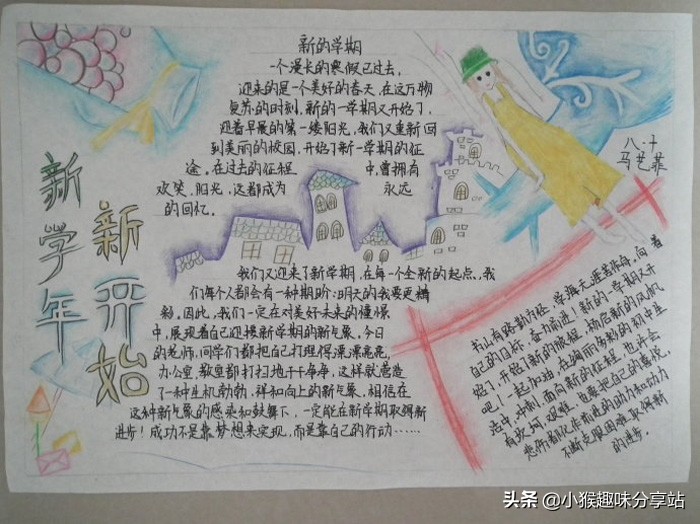 新学年
新开始
新的学期
一个漫长的寒假已过去，
迎来的是一个美好的春天，在这万物
复苏的时刻，新的一学期又开始了，
迎着早晨的第一缕阳光，我们又重新回
到美丽的校园，开始了新一学期的征
途，在过去的征程中，曾拥有
欢笑、阳光，这都成为永远
的回忆。
八.十
马艺菲
我们又迎来了新学期，在每一个全新的起点，我
们每个人都会有一种期盼：明天的我要更精
彩，因此，我们一定在对美好未来的憧憬
中，展现着自己迎接新学期的新气象，今日
的老师，同学们都把自己打理得漂漂亮亮，
办公室，教室都打扫地干干净净，这样就营造
了一种生机勃勃，祥和向上的新气象，相信在
这种新气象的感染和鼓舞下，一定能在新学期取得新
进步！成功不是靠梦想来实现，而是靠自己的行动……
书山有路勤为径，学海无涯苦作舟，向着
自己的目标，奋力前进！新的一学期又开
始了，开始了新的旅程，扬启新的风帆
吧！一起加油，在绚丽多彩的初中生
活中，冲刺，面向新的征程，也许会
有坎坷，艰难，也要把自己的喜悦，
悲伤都化作前进的动力和动力
不断克服困难取得新
的进步。
头条 @小猴趣味分享站